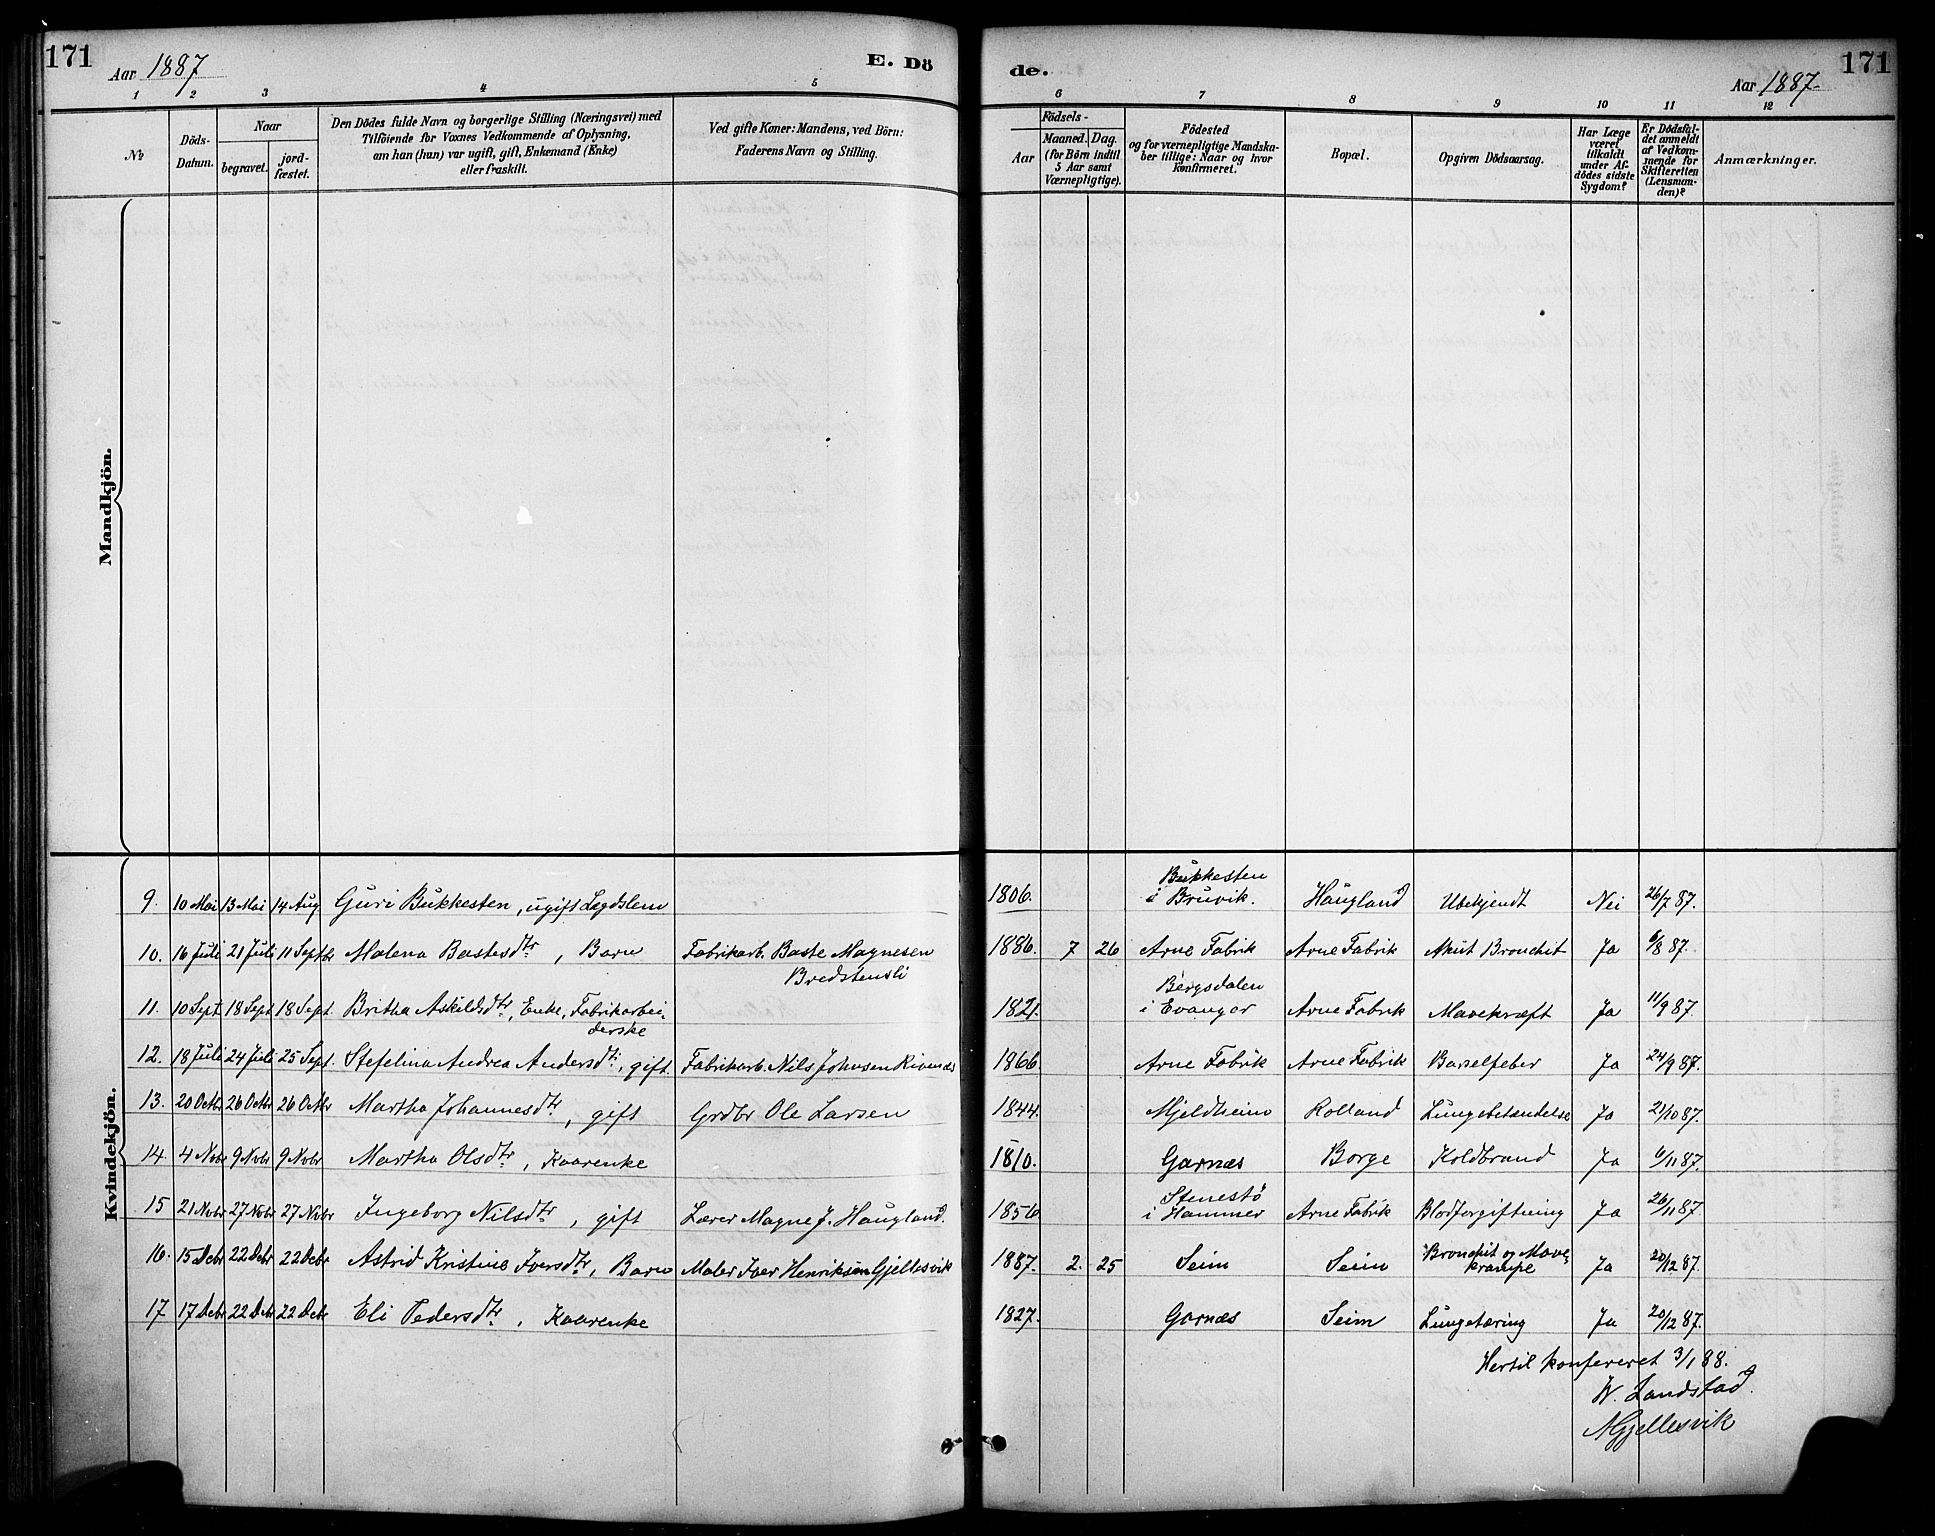 171 Aar 1887 E. Dö
de. Aar 1887. 171
1 2 3 4 5 6 7 8 9 10 11 12
No
Döds-
Datum.
Naar
begravet.
jord-
fæstet.
Den Dödes fulde Navn og borgerlige Stilling (Næringsvei) med
Tilföiende for Voxnes Vedkommende af Oplysning,
om han (hun) var ugift, gift, Enkemand (Enke)
eller fraskilt.
Ved gifte Koner: Mandens, ved Börn:
Faderens Navn og Stilling.
Födsels-
Aar
Maaned. Dag.
(for Börn indtil
5 Aar samt
Værnepligtige).
Födested
og for værnepligtige Mandska-
ber tillige: Naar og hvor
konfirmeret.
Bopæl.
Opgiven Dödsaarsag.
Har Læge
været
tilkaldt
under Af-
dödes sidste
Sygdom?
Er Dödsfal-
det anmeldt
af Vedkom-
mende for
Skifteretten
(Lensman-
den)?
Anmærkninger.
Mandkjön.
Kvindekjön.
9. 10 Mai 13 Mai 14 Aug Guri Bukkesten, ugift Lægdslem 1806. Bukkesten
i Bruvik. Haugland Ubekjendt Nei 26/7 87.
10. 16 Juli 21 Juli 11 Septbr Malena Bastesdtr, Barn Fabrikarb. Baste Magnesen
Bredstensli 1886. 7 26 Arne Fabrik Arne Fabrik Akut Bronchit Ja 6/8 87.
11. 10 Sept 18 Sept 18 Sept. Britha Askildsdtr, Enke, Fabrikarbei-
derske 1821. Bergsdalen
i Evanger Arne Fabrik Mavekræft Ja 11/9 87.
12. 18 Juli 24 Juli 25 Sept. Stefelina Andrea Andersdtr, gift Fabrikarb. Nils Johnsen Rivenæs 1866. Arne Fabrik Arne Fabrik Barselfeber Ja 24/9 87.
13. 20 Octbr 26 Octbr 26 Octbr Martha Johannesdtr, gift Grdbr Ole Larsen 1844. Mjeldheim Rolland Lungebetændelse Ja 21/10 87.
14. 4 Novbr 9 Novbr 9 Novbr Martha Olsdtr, Kaarenke 1810. Garnæs Borge Koldbrand Ja 6/11 87.
15 21 Novbr 27 Novbr 27 Novbr Ingeborg Nilsdtr, gift Lærer Magne J. Haugland. 1856 Stenestö
i Hammer Arne Fabrik Blodforgiftning Ja 26/11 87.
16. 15 Debr 22 Debr 22 Debr Astrid Kristine Iversdtr, Barn Maler Iver Henriksen Gjellesvik 1887. 2. 25 Seim Seim Bronchit og Mave-
krampe Ja 20/12 87.
17 17 Debr 22 Debr 22 Debr Eli Pedersdtr, Kaarenke 1827. Garnæs Seim Lungetæring Ja 20/12 87.
Hertil konfereret 3/1 88.
W. Landstad.
Gjellesvik